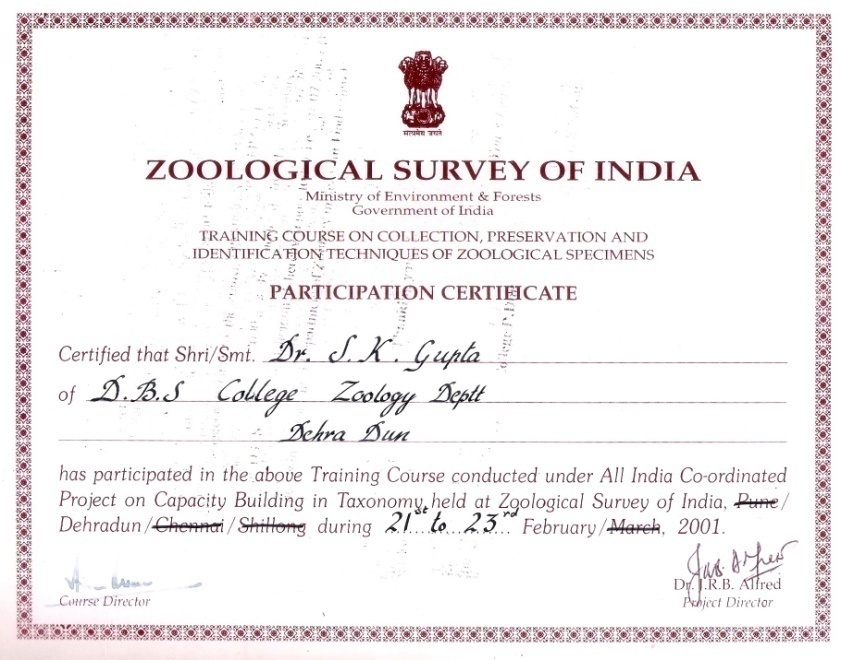 सत्यमेव जयते
ZOOLOGICAL SURVEY OF INDIA
Ministry of Environment & Forests
Government of India
TRAINING COURSE ON COLLECTION, PRESERVATION AND
IDENTIFICATION TECHNIQUES OF ZOOLOGICAL SPECIMENS
PARTICIPATION CERTIFICATE
Certified that Shri/Smt. Dr. S. K. Gupta
of D.B.S College Zoology Deptt
Dehra Dun
has participated in the above Training Course conducted under All India Co-ordinated
Project on Capacity Building in Taxonomy held at Zoological Survey of India, Pune/
Dehradun/Chennai/Shillong during 21st to 23rd February/March, 2001.
Dr. J.R.B. Alfred
Course Director
Project Director